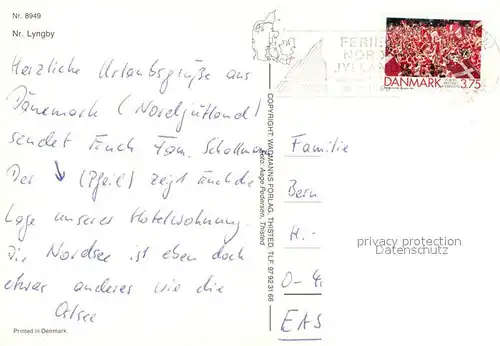 Nr. 8949
Nr. Lyngby
Herzliche Urlaubsgrüße aus
Dänemark (Nordjütland)
sendet Euch Fam.
Der ↓ (Pfeil) zeigt Euch die
Lage unserer Hotelwohnung.
Die Nordsee ist eben doch
etwas anderes wie die
Ostsee
Printed in Denmark
COPYRIGHT: WAGMANNS FORLAG. THISTED. TLF. 97 92 31 68
Foto: Aage Pedersen, Thisted
FERIE
NORD
JYLLAND
DANMARK 3.75
Familie
Bern
H.-
O-
EAS
privacy protection
Datenschutz